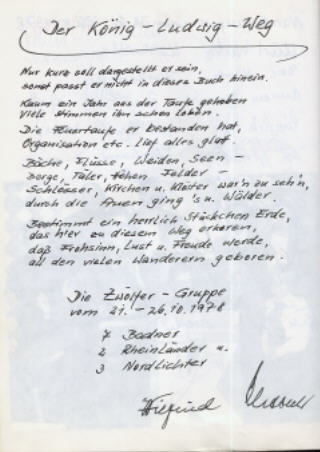 Der König - Ludwig - Weg
Nur kurz soll dargestellt er sein,
sonst passt er nicht in dieses Buch hinein.
Kaum ein Jahr aus der Taufe gehoben
Viele Stimmen ihn schon loben.
Die Feuertaufe er bestanden hat,
Organisation etc. lief alles glatt.
Bäche, Flüsse, Weiden, Seen -
Berge, Täler, Felder -
Schlösser, Kirchen u. Klöster war'n zu seh'n,
durch die Auen ging's u. Wälder.
Bestimmt ein herrlich Stückchen Erde,
das hier zu diesem Weg erkoren,
daß Frohsinn, Lust u. Freude werde,
all den vielen Wanderern geboren.
Die Zwölfer - Gruppe
vom 21. - 26.10.1978
7 Badner
2 Rheinländer u.
3 Nordlichter
Wilfried